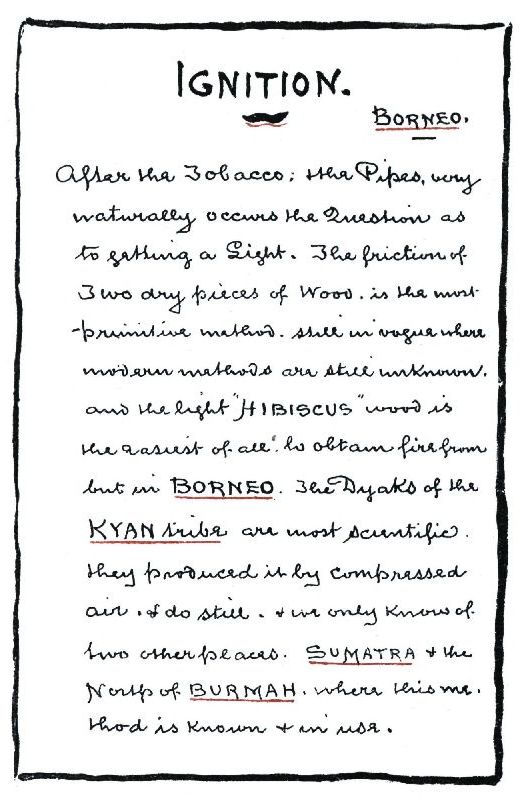 IGNITION.
BORNEO.
After the Tobacco; & the Pipes, very
naturally occurs the Question as
to getting a Light. The friction of
Two dry pieces of Wood. is the most
primitive method. still in vogue where
modern methods are still unknown.
and the light "HIBISCUS" wood is
the easiest of all to obtain fire from
but in BORNEO. The Dyaks of the
KYAN tribe are most scientific.
they produced it by compressed
air. & do still. & we only know of
two other places. SUMATRA & the
North of BURMAH. where this me.
thod is known & in use.